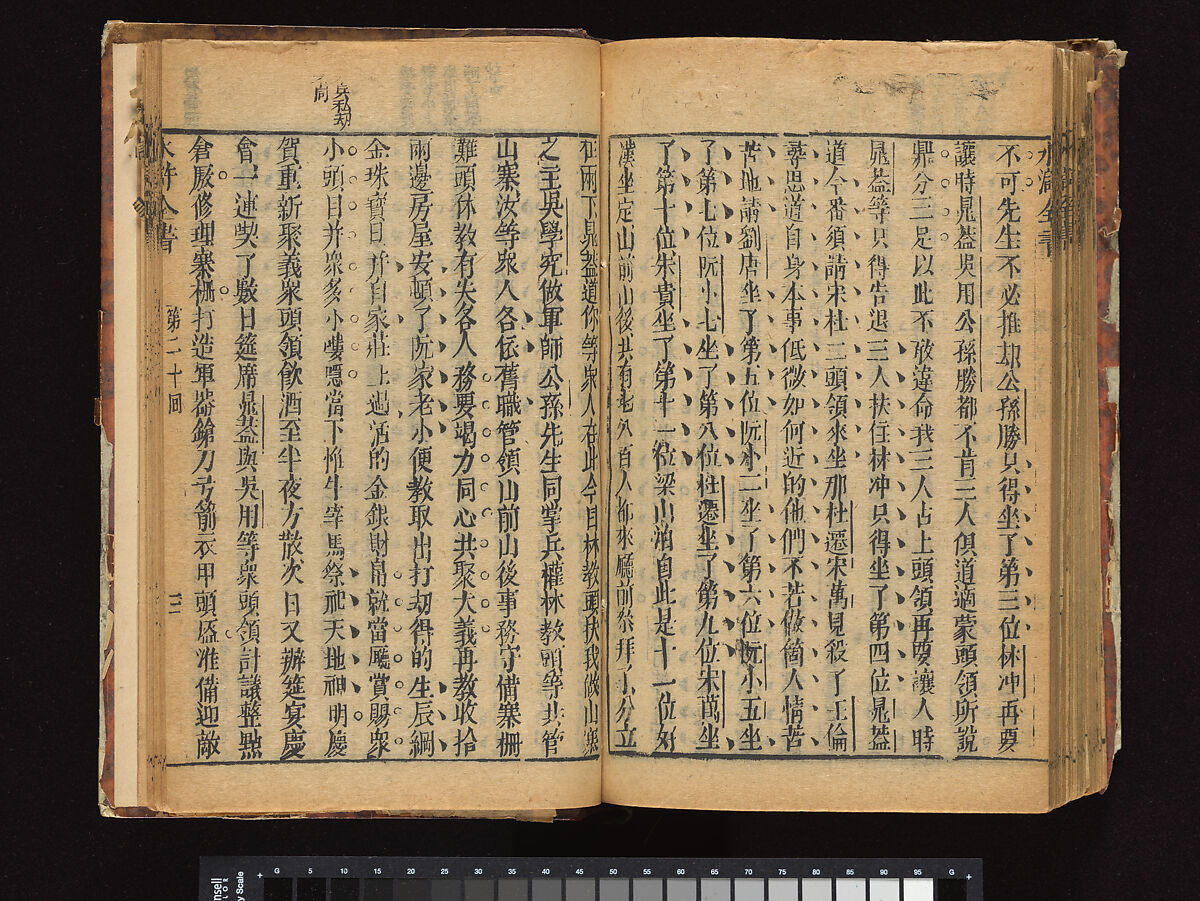 水滸全書
不可先生不必推却公孫勝只得坐了第三位林冲再要
讓時晁蓋吳用公孫勝都不肯三人俱道適蒙頭領所說
鼎分三足以此不敢違命我三人占上頭領再要讓人時
晁蓋等只得告退三人扶住林冲只得坐了第四位晁蓋
道今番須請宋杜二頭領來坐那杜遷宋萬見殺了王倫
尋思道自身本事低微如何近的他們不若做箇人情苦
苦地請劉唐坐了第五位阮小二坐了第六位阮小五坐
了第七位阮小七坐了第八位杜遷坐了第九位宋萬坐
了第十位朱貴坐了第十一位梁山泊自此是十一位好
漢坐定山前山後共有七八百人都來廳前參拜了分立
在兩下晁蓋道你等衆人在此今日林教頭扶我做山寨
之主吳學究做軍師公孫先生同掌兵權林教頭等共管
山寨汝等衆人各依舊職管領山前山後事務守備寨柵
灘頭休教有失各人務要竭力同心共聚大義再教收拾
兩邊房屋安頓了阮家老小便教取出打刼得的生辰綱
金珠寶貝并自家莊上過活的金銀財帛就當廳賞賜衆
小頭目并衆多小嘍囉當下椎牛宰馬祭祀天地神明慶
賀重新聚義衆頭領飲酒至半夜方散次日又辦筵宴慶
會一連喫了數日筵席晁蓋與吳用等衆頭領計議整點
倉廒修理寨柵打造軍器鎗刀弓箭衣甲頭盔准備迎敵
水滸全書 第二十回 三
5 10 15 20 25 30 35 40 45 50 55 60 65 70 75 80 85 90 95